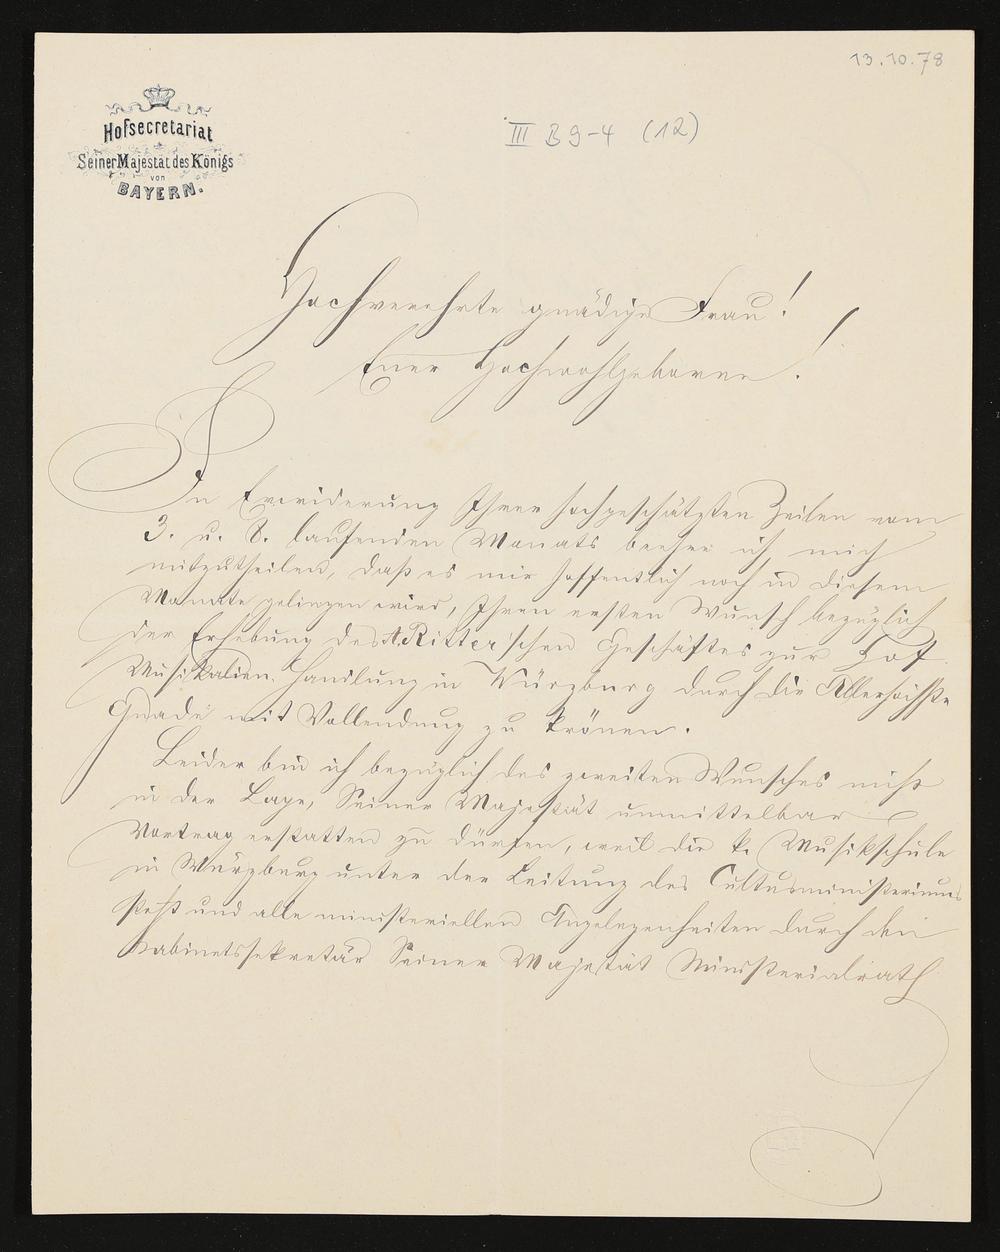 13.10.78
III B 9-4 (12)
Hofsecretariat
Seiner Majestät des Königs
von
BAYERN.
Hochverehrte gnädige Frau!
Euer Hochwohlgeboren!
In Erwiderung Ihrer hochgeschätzten Zeilen vom
3. u. 8. laufenden Monats beehre ich mich
mitzutheilen, daß es mir hoffentlich noch in diesem
Monate gelingen wird, Ihren ersten Wunsch bezüglich
der Erhebung des A. Ritter'schen Geschäftes zur Hof-
Musikalien-Handlung in Würzburg durch die Allerhöchste
Gnade mit Vollendung zu krönen.
Leider bin ich bezüglich des zweiten Wunsches nicht
in der Lage, Seiner Majestät unmittelbar
Vortrag erstatten zu dürfen, weil die k. Musikschule
in Würzburg unter der Leitung des Cultusministeriums
steht und alle ministeriellen Angelegenheiten durch den
Kabinetssekretär Seiner Majestät Ministerialrath